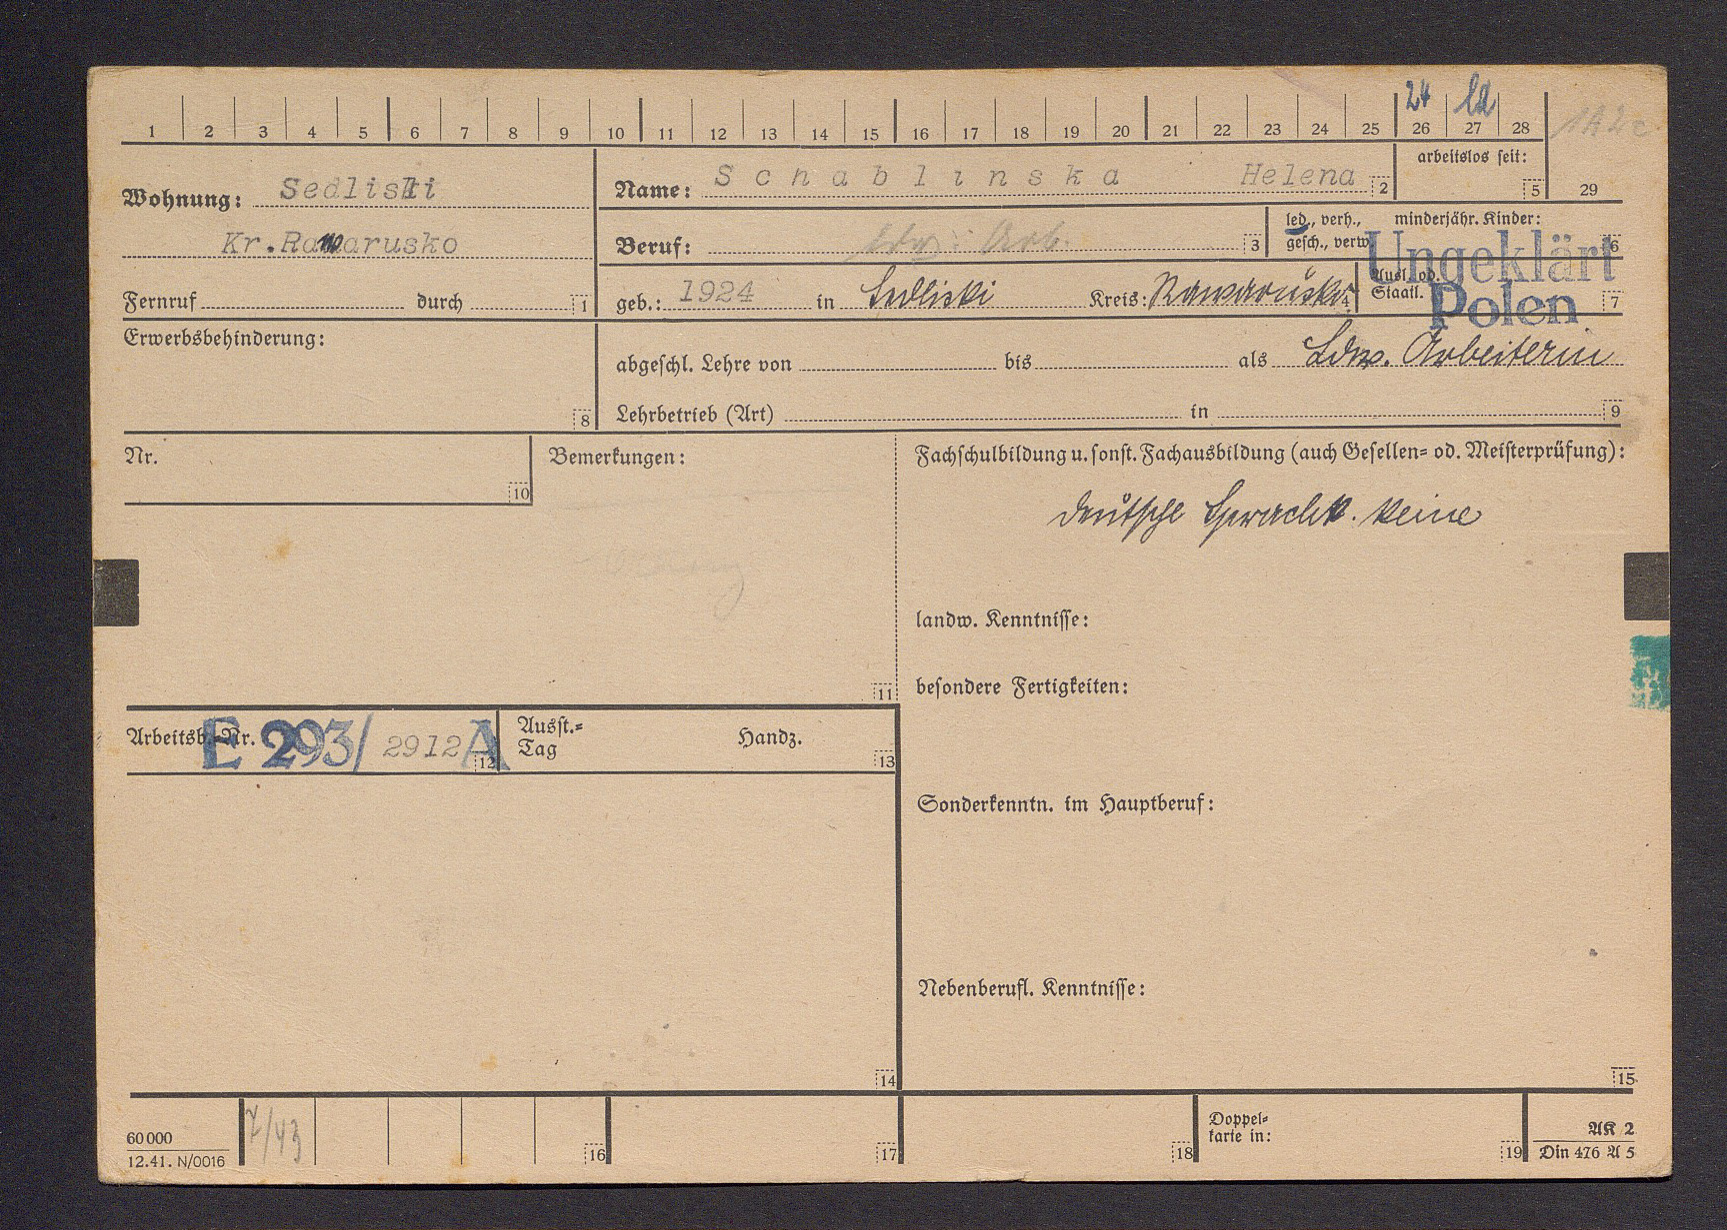 24 ld
1 2 3 4 5 6 7 8 9 10 11 12 13 14 15 16 17 18 19 20 21 22 23 24 25 26 27 28
1A2c
Wohnung: Sedliski
Kr.Rawarusko
Fernruf durch 1
Name: Schablinska Helena 2
arbeitslos seit: 5
29
Beruf: Ldw. Arb. 3
led., verh., gesch., verw.
minderjähr. Kinder: 6
geb.: 1924 in Sedliski Kreis: Rawaruska 4
Ausl. od. Staatl. 7
Ungeklärt
Polen
Erwerbsbehinderung: 8
abgeschl. Lehre von bis als Ldw. Arbeiterin
Lehrbetrieb (Art) in 9
Nr. 10
Bemerkungen:
11
Fachschulbildung u. sonst. Fachausbildung (auch Gesellen= od. Meisterprüfung):
deutsche Sprachk. keine
landw. Kenntnisse:
besondere Fertigkeiten:
Arbeitsb.-Nr. E 293/ 2912 A 12
Ausst.=
Tag
Handz. 13
Sonderkenntn. im Hauptberuf:
Nebenberufl. Kenntnisse:
14
15
60000
12.41. N/0016
7/43
16
17
18
Doppel=
karte in:
19
AK 2
Din 476 A 5